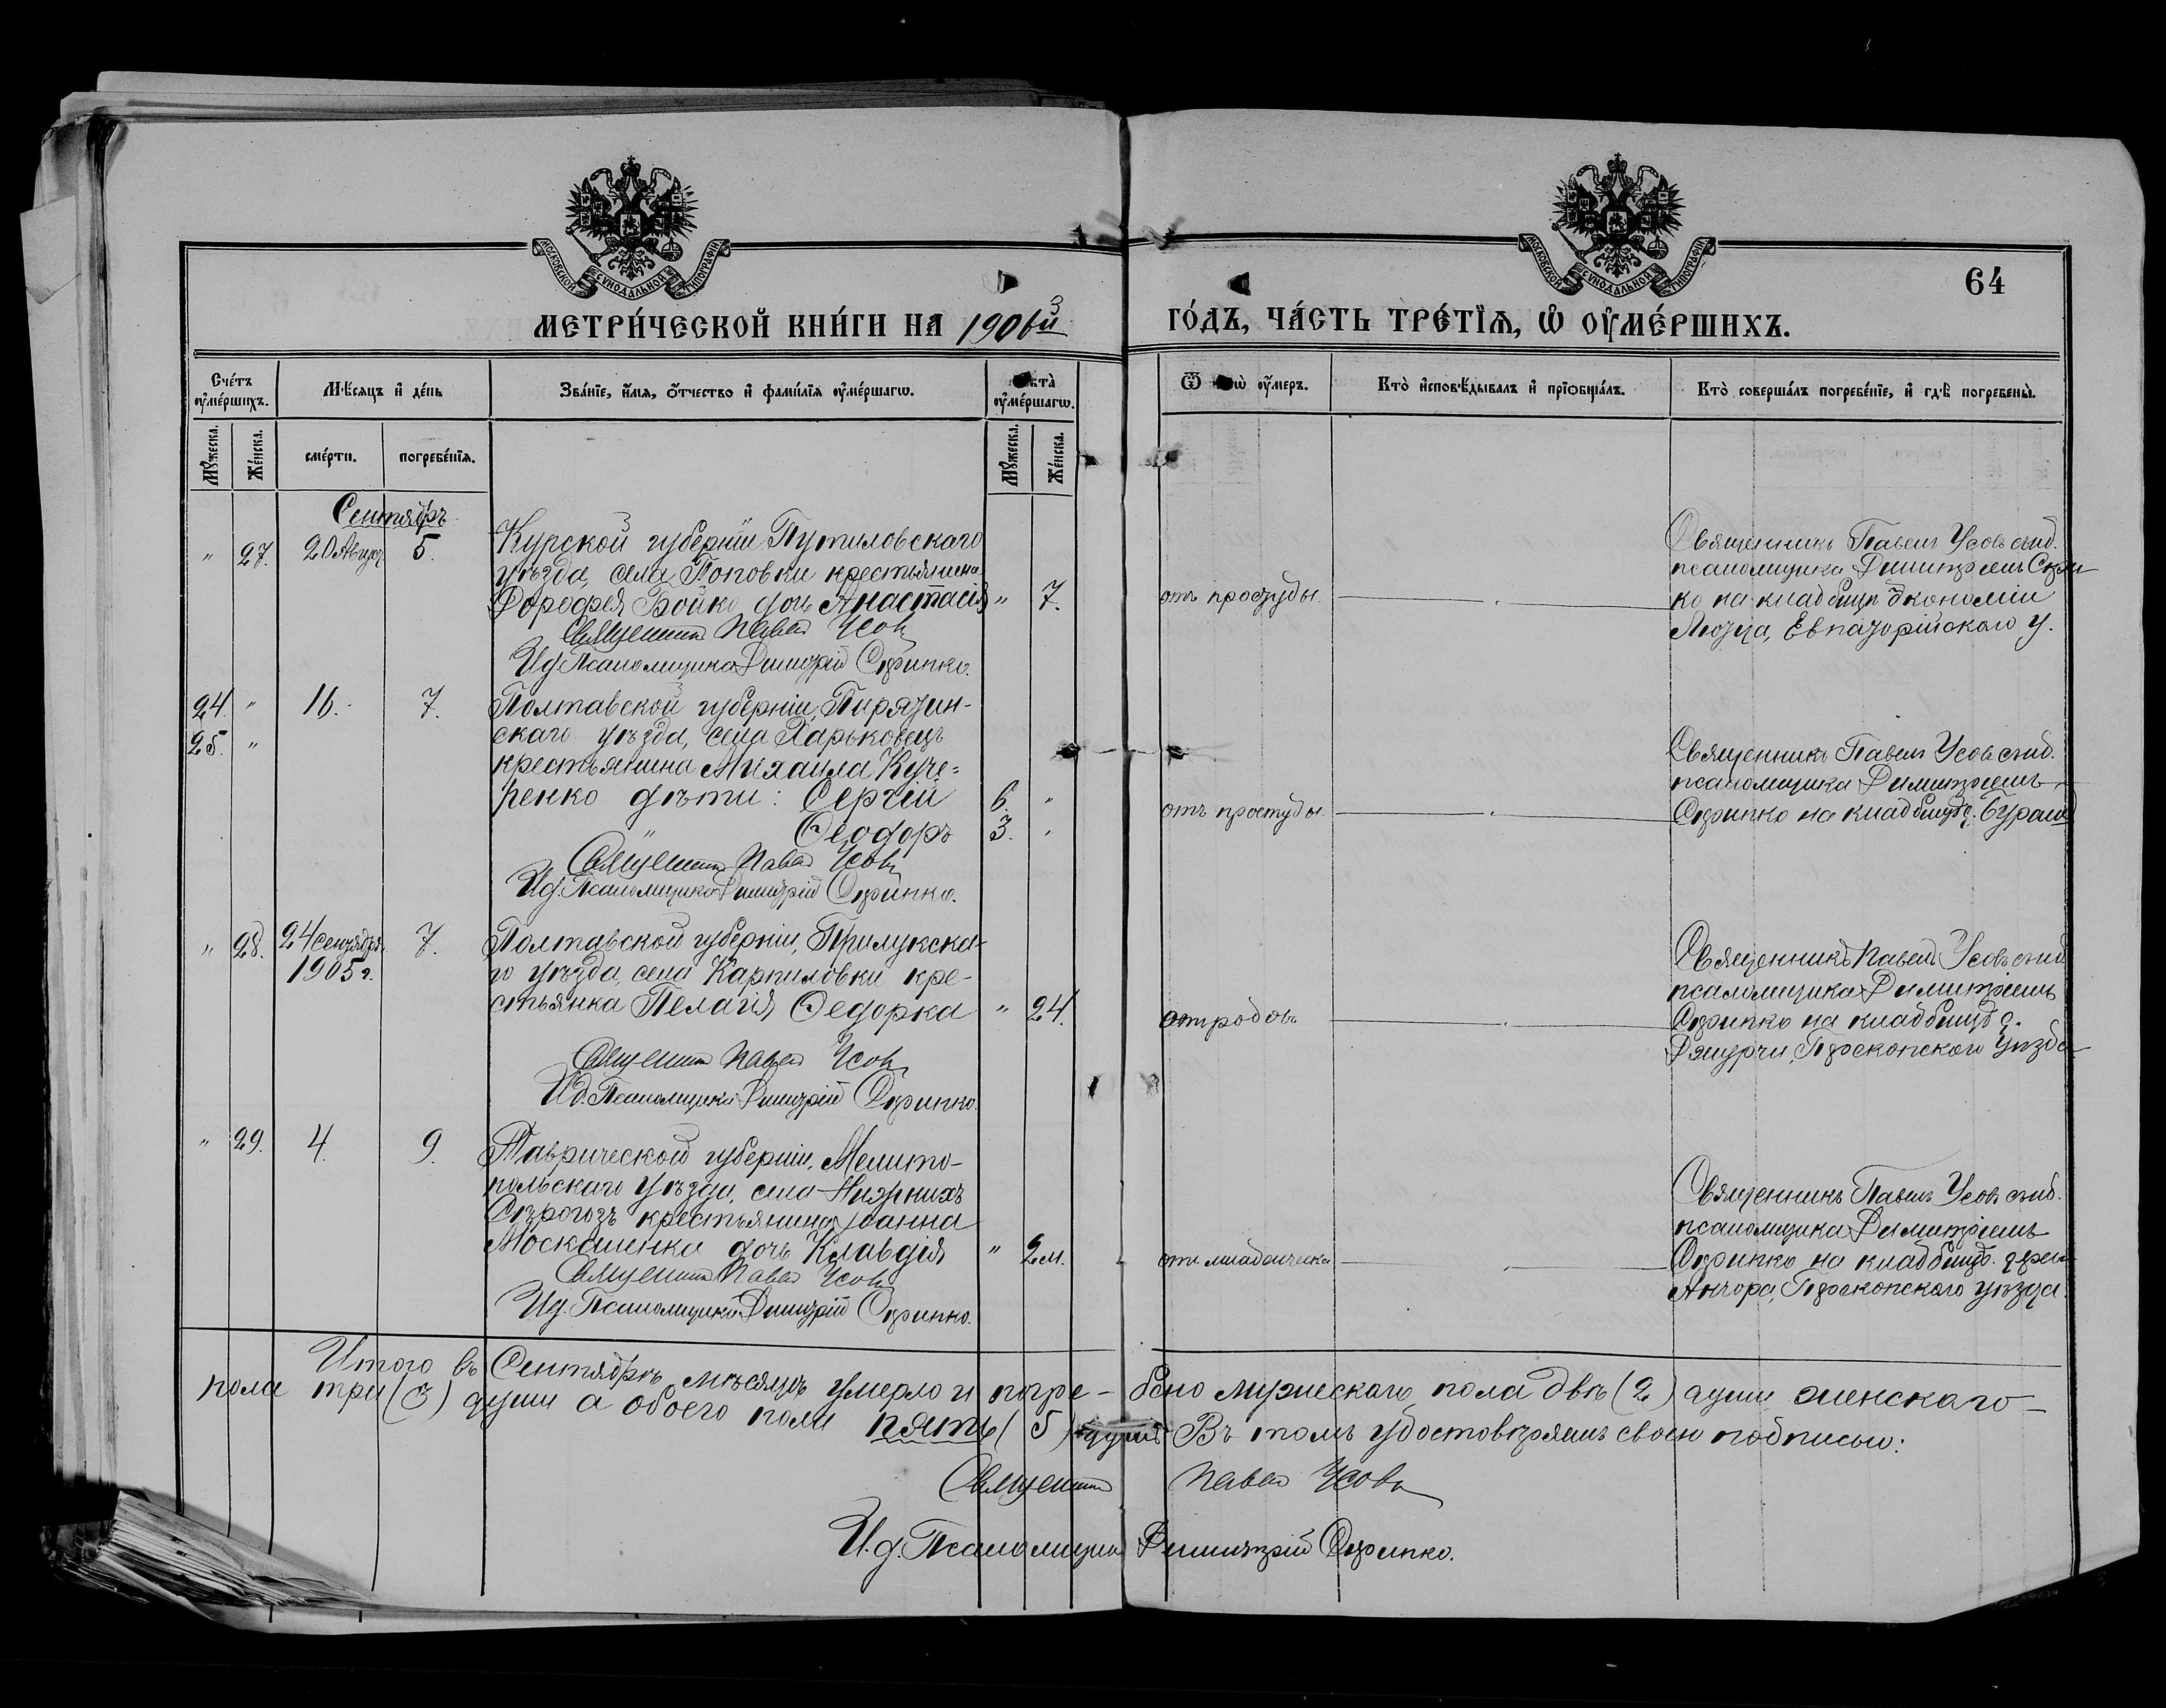 МОСКОВСКОЙ СѴНОДАЛЬНОЙ ТИПОГРАФІИ
МОСКОВСКОЙ СѴНОДАЛЬНОЙ ТИПОГРАФІИ
64
МЕТРИ́ЧЕСКОЙ КНИ́ГИ НА 1906й
ГО́ДЪ, ЧА́СТЬ ТРЕ́ТІѦ, Ѽ ОУ҆МЕ́РШИХЪ.
Сче́тъ оу҆ме́ршихъ.
Мѣ́сяцъ и҆ де́нь
Зва́нїе, и҆́мѧ, ѻ҆́тчество и҆ фами́лїѧ оу҆ме́ршагѡ.
оу҆ме́ршагѡ.
оу҆́меръ.
Кто̀ и҆сповѣ́дывалъ и҆ прїѡбща́лъ.
Кто̀ соверша́лъ погребе́нїе, и҆ гдѣ̀ погребены̀.
Му́жеска.
Же́нска.
сме́рти.
погребе́нїѧ.
Му́жеска.
Же́нска.
Сентябрь
" 27. 20 Август 5.
Курской губерніи Путиловскаго
уѣзда, села Поповки крестьянина
Дорофея Бойко дочь Анастасія " 7.
Священникъ Павелъ Усовъ
И.д. Псаломщика Димитрій Скрипко.
отъ простуды.
Священникъ Павелъ Усовъ съ и.д.
псаломщика Димитріемъ Скрип
ко на кладбищѣ экономіи
Евпаторійскаго у.
24. " 16. 7.
25. "
Полтавской губерніи, Пирятин-
скаго уѣзда, села Харьковецъ
крестьянина Михаила Куче-
ренко дѣти: Сергій 6. "
" Ѳеодоръ 3. "
Священникъ Павелъ Усовъ
И.д. Псаломщика Димитрій Скрипко.
отъ простуды.
Священникъ Павелъ Усовъ съ и.д.
псаломщика Димитріемъ
Скрипко на кладбищѣ д.
" 28. 24 сентября 1905 г. 7.
Полтавской губерніи, Прилукска-
го уѣзда, села Карпиловки кре-
стьянка Пелагія Ѳедорка " 24.
Священникъ Павелъ Усовъ
И.д. Псаломщика Димитрій Скрипко.
отъ родовъ
Священникъ Павелъ Усовъ съ и.д.
псаломщика Димитріемъ
Скрипко на кладбищѣ д.
Перекопскаго уѣзда
" 29. 4. 9.
Таврической губерніи, Мелито-
польскаго уѣзда, села Нижнихъ
Сѣрогозъ крестьянина Іоанна
Москаленка дочь Клавдія " 2 м.
Священникъ Павелъ Усовъ
И.д. Псаломщика Димитрій Скрипко.
отъ младенческ
Священникъ Павелъ Усовъ съ и.д.
псаломщика Димитріемъ
Скрипко на кладбищѣ
Перекопскаго уѣзда
Итого въ Сентябрѣ мѣсяцѣ умерло и погре-бено мужескаго пола двѣ (2) души женскаго
пола три (3) души а обоего пола пять (5) душъ Въ томъ удостовѣряемъ своею подписью:
Священникъ Павелъ Усовъ
И.д. Псаломщика Димитрій Скрипко.